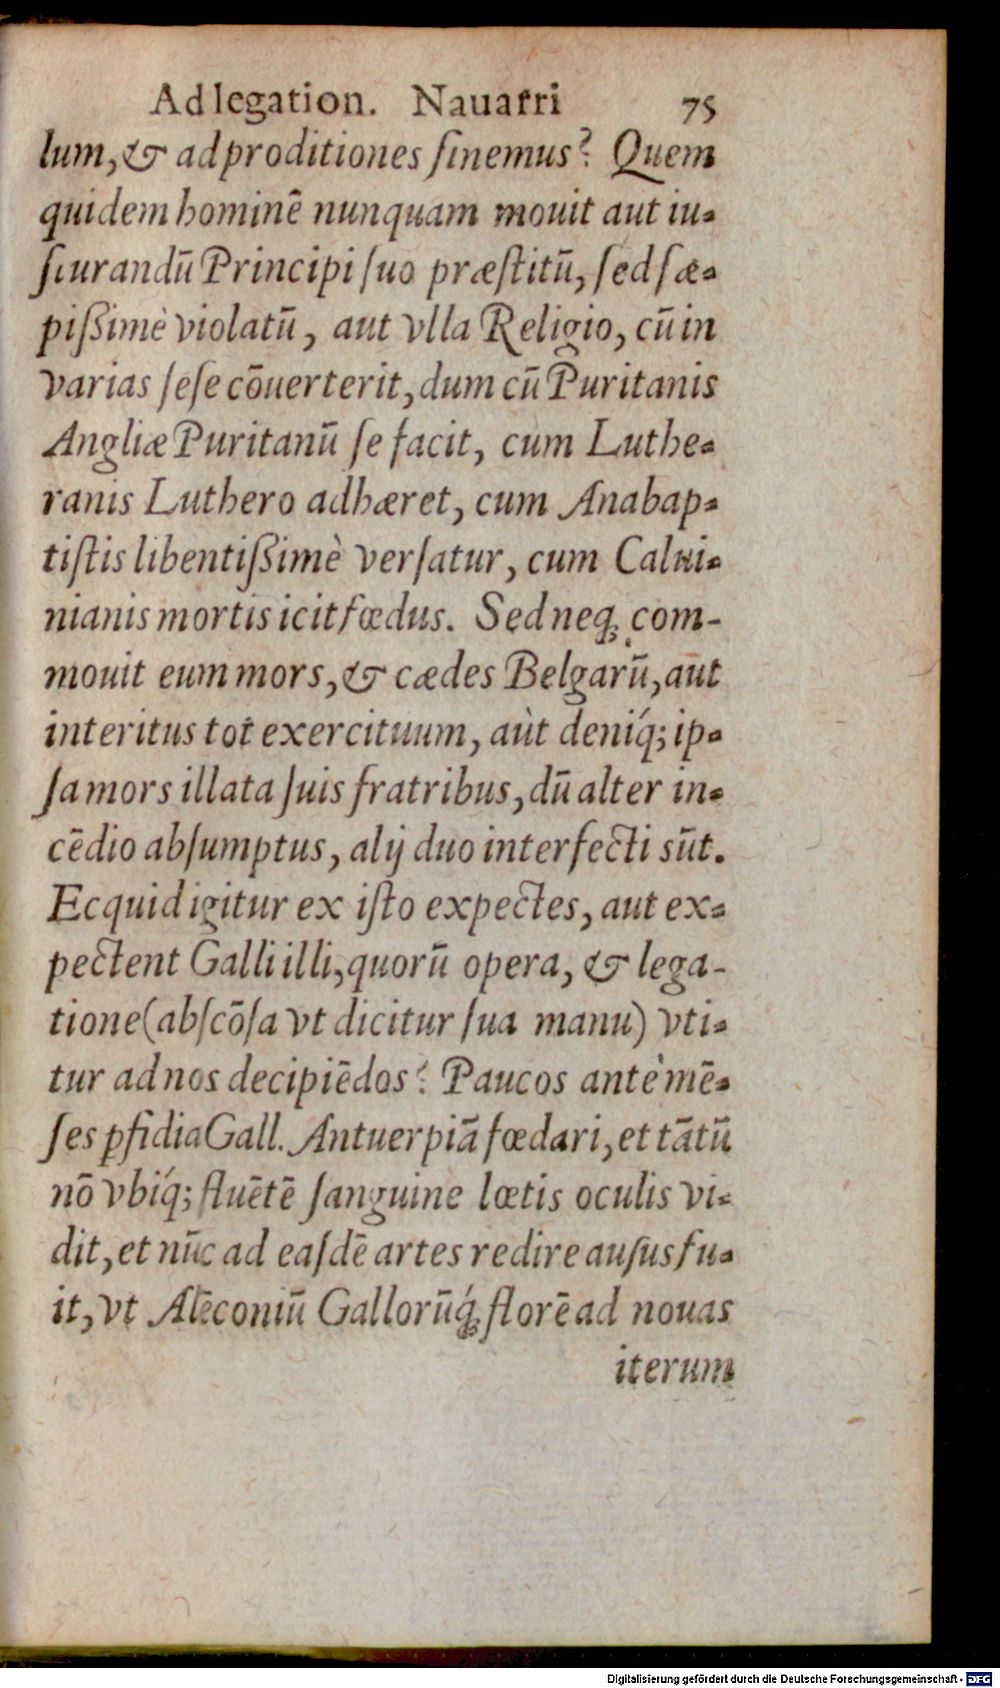 Ad legation. Nauarri 75
lum, & ad proditiones ſinemus? Quem
quidem hominē nunquam mouit aut iu-
ſiurandū Principi ſuo præſtitū, ſed ſæ-
piſsimè violatū, aut vlla Religio, cū in
varias ſeſe cōuerterit, dum cū Puritanis
Angliæ Puritanū ſe facit, cum Luthe-
ranis Luthero adhæret, cum Anabap-
tiſtis libentiſsimè verſatur, cum Calui-
nianis mortis icit fœdus. Sed neq; com-
mouit eum mors, & cædes Belgarū, aut
interitus tot exercituum, aùt deniq́; ip-
ſa mors illata ſuis fratribus, dū alter in-
cēdio abſumptus, alij duo interfecti sūt.
Ecquid igitur ex iſto expectes, aut ex-
pectent Galli illi, quorū opera, & lega-
tione (abſcōſa vt dicitur ſua manu) vti-
tur ad nos decipiēdos? Paucos antè mē-
ſes ꝑfidia Gall. Antuerpiā fœdari, et tātū
nō vbiq́; fluētē ſanguine lœtis oculis vi-
dit, et nūc ad eaſdē artes redire auſus fu-
it, vt Alēconiū Gallorūq́; florē ad nouas
iterum
Digitalisierung gefördert durch die Deutsche Forschungsgemeinschaft - DFG